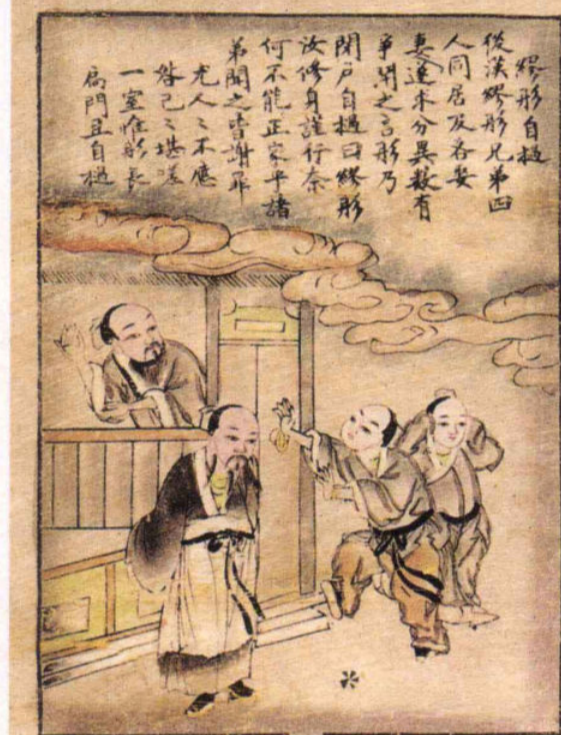 繆彤自撾
後漢繆彤兄弟四
人同居及各娶
妻遂求分異數有
爭鬭之言彤乃
閉戶自撾曰繆彤
汝修身謹行奈
何不能正家乎諸
弟聞之皆謝罪
尤人々不應
咎己々堪嗟
一室惟彤長
扃門且自撾